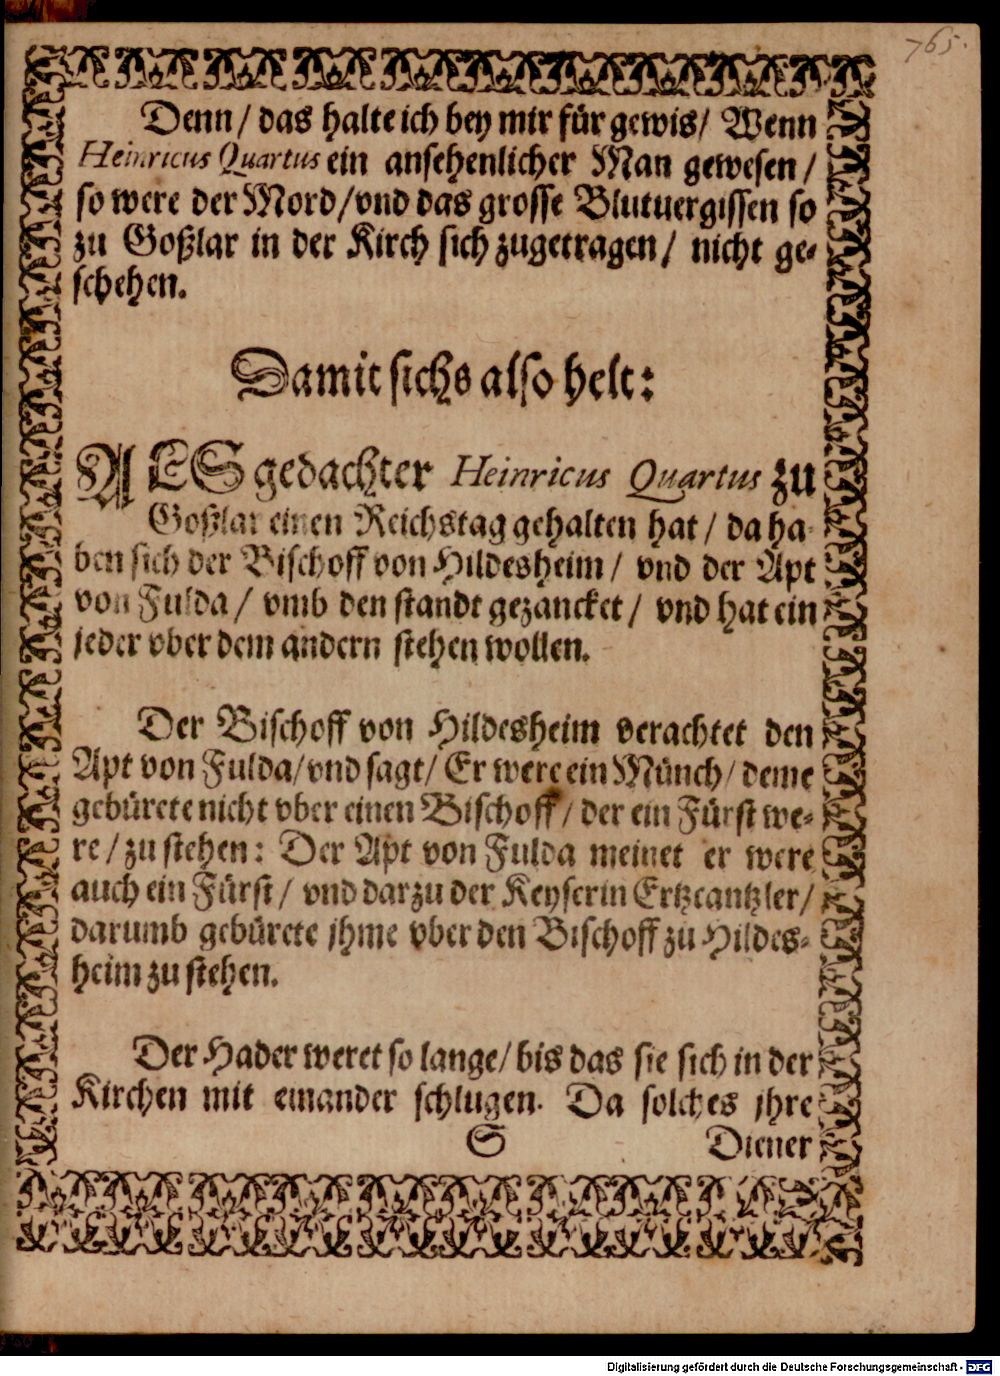 765.
Denn / das halte ich bey mir für gewis / Wenn
Heinricus Quartus ein ansehenlicher Man gewesen /
so were der Mord / vnd das grosse Blutuergissen so
zu Goßlar in der Kirch sich zugetragen / nicht ge-
schehen.
Damit sichs also helt:
ALS gedachter Heinricus Quartus zu
Goßlar einen Reichstag gehalten hat / da ha-
ben sich der Bischoff von Hildesheim / vnd der Apt
von Fulda / vmb den standt gezancket / vnd hat ein
jeder vber dem andern stehen wollen.
Der Bischoff von Hildesheim verachtet den
Apt von Fulda / vnd sagt / Er were ein Münch / deme
gebürete nicht vber einen Bischoff / der ein Fürst we-
re / zu stehen: Der Apt von Fulda meinet er were
auch ein Fürst / vnd darzu der Keyserin Ertzcantzler /
darumb gebürete jhme vber den Bischoff zu Hildes-
heim zu stehen.
Der Hader weret so lange / bis das sie sich in der
Kirchen mit einander schlugen. Da solches jhre
S Diener
Digitalisierung gefördert durch die Deutsche Forschungsgemeinschaft - DFG